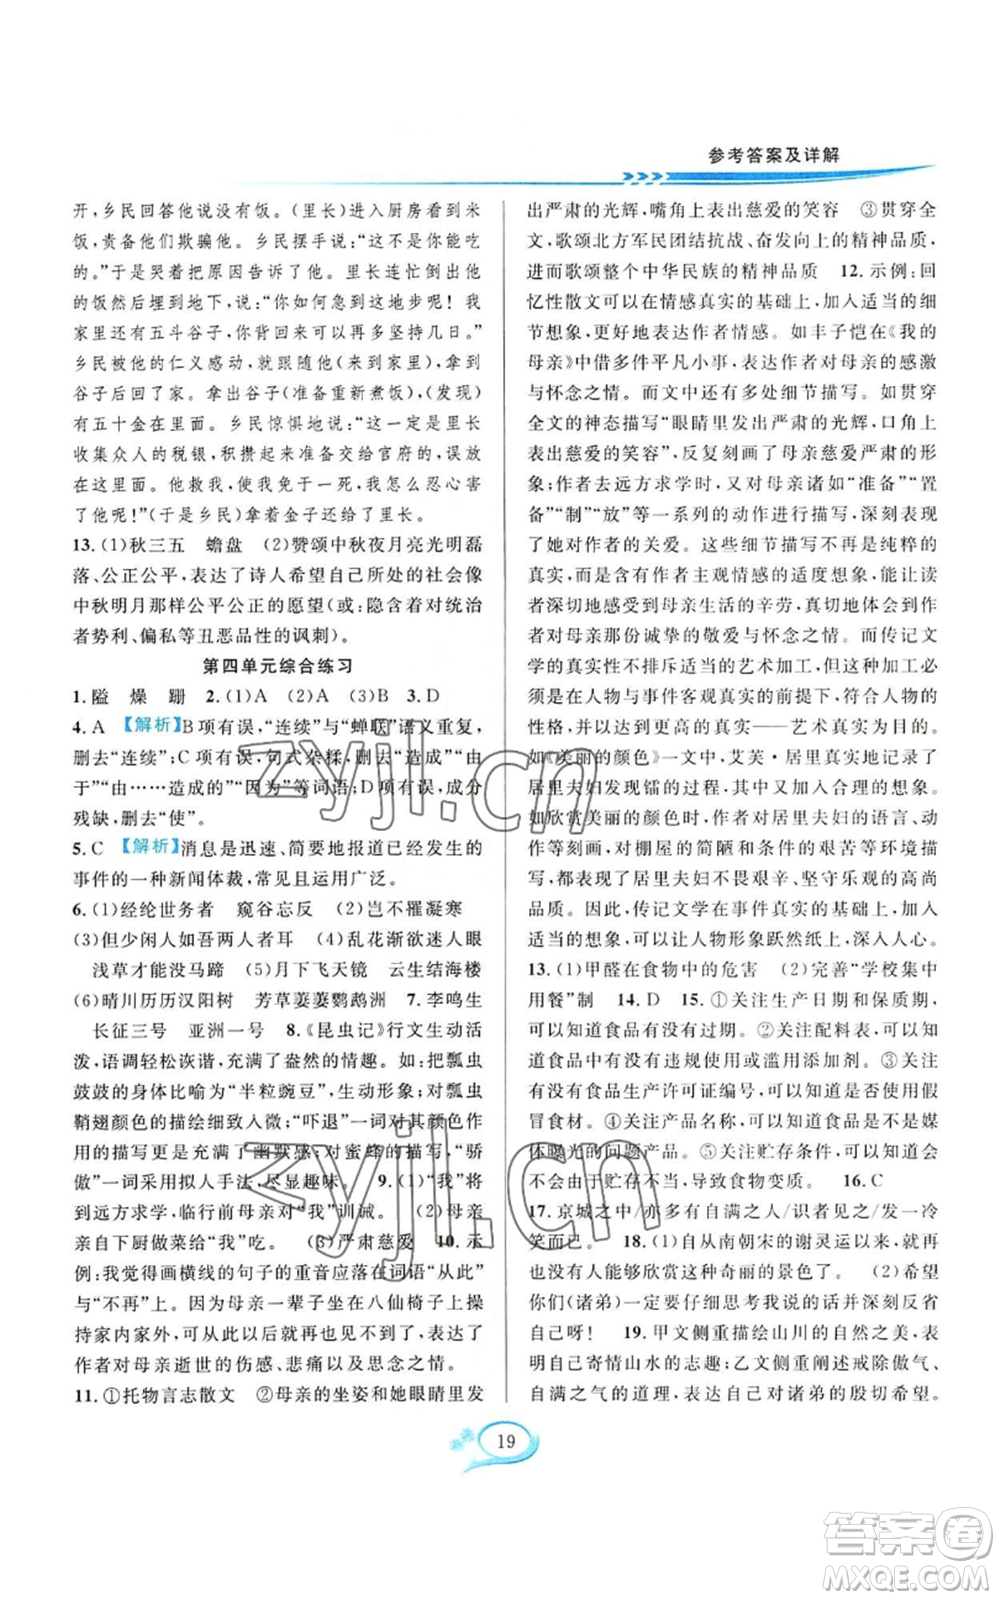 参考答案及详解
开，乡民回答他说没有饭。(里长)进入厨房看见米
饭，责备他们欺骗他。乡民摆手说：“不是你能吃
的。”于是哭着把原因告诉了他。里长连忙倒出他
的饭然后埋到地下，说：“你如何急到这地步呢！我
家里还有五斗谷子，你背回来可以再多坚持几日。”
乡民被他的仁义感动，就跟随他(来到家里)，拿到
谷子后回了家。拿出谷子(准备重新煮饭)，(发现)
有五十金在里面。乡民惊惧地说：“这一定是里长
收集众人的税银，积攒起来交给官府的，误放
在这里面。他救我于一死，我怎么忍心害
了他呢！”(于是乡民)拿着金子还给了里长。
13. (1)秋三五　蟾盘　(2)赞颂中秋夜月亮光明磊
落、公正公平，表达了诗人希望自己所处的社会像
中秋明月那样公平公正的愿望(或：隐含着对统治
者势利、偏私等丑恶品性的讽刺)。
第四单元综合练习
1. 隘　燥　跚　2. (1)A　(2)A　(3)B　3. D
4. A　【解析】B项有误，“连续”与“蝉联”语义重复，
删去“连续”；C项有误，句式杂糅，删去“造成”“由
于”“由……造成的”“因为”等词语；D项有误，成分
残缺，删去“使”。
5. C　【解析】消息是迅速、简要地报道已经发生的
事件的一种新闻体裁，常见且运用广泛。
6. (1)经纶世务者　窥谷忘反　(2)岂不罹凝寒
(3)但少闲人如吾两人者耳　(4)乱花渐欲迷人眼
浅草才能没马蹄　(5)月下飞天镜　云生结海楼
(6)晴川历历汉阳树　芳草萋萋鹦鹉洲　7. 李鸣生
长征三号　亚洲一号　8.《昆虫记》行文生动活
泼，语调轻松诙谐，充满了盎然的情趣。如把瓢虫
鼓鼓的身体比喻为“半粒豌豆”，生动形象；对瓢虫
鞘翅颜色的描绘细致入微；“吓退”一词对颜色作用
的描写充满了幽默感；对蜜蜂的描写中，“骄
傲”一词采用拟人手法，尽显趣味。　9. (1)“我”将
到远方求学，临行前母亲对“我”训诫。　(2)母亲
亲自下厨做菜给“我”吃。　(3)严肃慈爱　10. 示
例：我觉得画横线的句子的重音应落在词语“从此”
与“不再”上。因为母亲一辈子坐在八仙椅子上操持
家内家外，可从此不可能再看到母亲了，表达了
作者对母亲逝世的伤感、悲痛以及思念之情。
11. ①托物言志散文　②母亲的坐姿和她眼睛里发
出严肃的光辉，嘴角上表出慈爱的笑容　③贯穿全
文，歌颂北方军民团结抗战、奋发向上的精神品质，
进而歌颂整个中华民族的精神品质　12. 示例：回
忆性散文可以在情感真实的基础上，加入适当的细
节想象，更好地表达作者情感。如丰子恺在《我的
母亲》中借多件平凡小事，表达作者对母亲的感激
与怀念之情。而文中还有多处细节描写。如贯穿
全文的神态描写“眼睛里发出严肃的光辉，口角上
表出慈爱的笑容”，反复刻画了母亲慈爱严肃的形
象；作者去远方求学时，又对母亲诸如“准备”“置
备”“制”“放”等一系列的动作进行描写，深刻表现
了她对作者的关爱。这些细节描写不再是纯粹的
真实，而是含有作者主观情感的适度想象，能让读者
深切地感受到母亲生活的辛劳，也更能体会到作者
对母亲那份诚挚的敬爱与怀念之情。而传记文
学的真实性并不排斥必要的艺术加工，加工必须
是在人物与事件客观真实的前提下，符合人物的
性格，并达到更高的真实——艺术真实为目的。
如《美丽的颜色》一文中，艾芙·居里真实地记录了
居里夫妇发现镭的过程，又加入合理的想象。
如欣赏美丽的颜色时，写出居里夫妇的语言、动作，
并用棚屋的简陋和条件的艰苦等环境描写，
表现出居里夫妇不畏艰辛、坚守乐观的高尚
品质。因此，传记文学在事件真实的基础上，加入
适当的想象，可以让人物形象跃然纸上，深入人心。
13. (1)甲醛在食物中的危害　(2)完善“学校集中
用餐”制　14. D　15. ①关注生产日期和保质期，
可以知道食品有没有过期。②关注配料表，可以知
道食品中有没有违规使用添加剂。③关注
有没有食品生产许可证编号，可以知道是否使用假
冒食材。④关注产品名称，可以知道食品是不是媒
体曝光的问题产品。⑤关注贮存条件，可以知道会
不会由于贮存不当，导致食物变质。　16. C
17. 京城之中/亦多有自满之人/识者见之/发一冷
笑而已。　18. (1)自从南朝宋的谢灵运以来，就再
也没有人能够欣赏这种奇丽的景色了。　(2)希望
你们(诸弟)一定要仔细思考我说的话并深刻反省
自己呀！　19. 甲文侧重描绘山川的自然之美，表明
自己寄情山水的志趣；乙文侧重阐述戒除傲气、
自满之气的道理，表达自己对诸弟的殷切希望。
19
zyjl.cn
zyjl.cn
答案圈
MXQE.COM